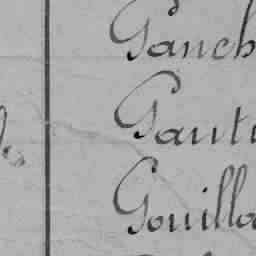 Ganch
Gauti
Gouillo